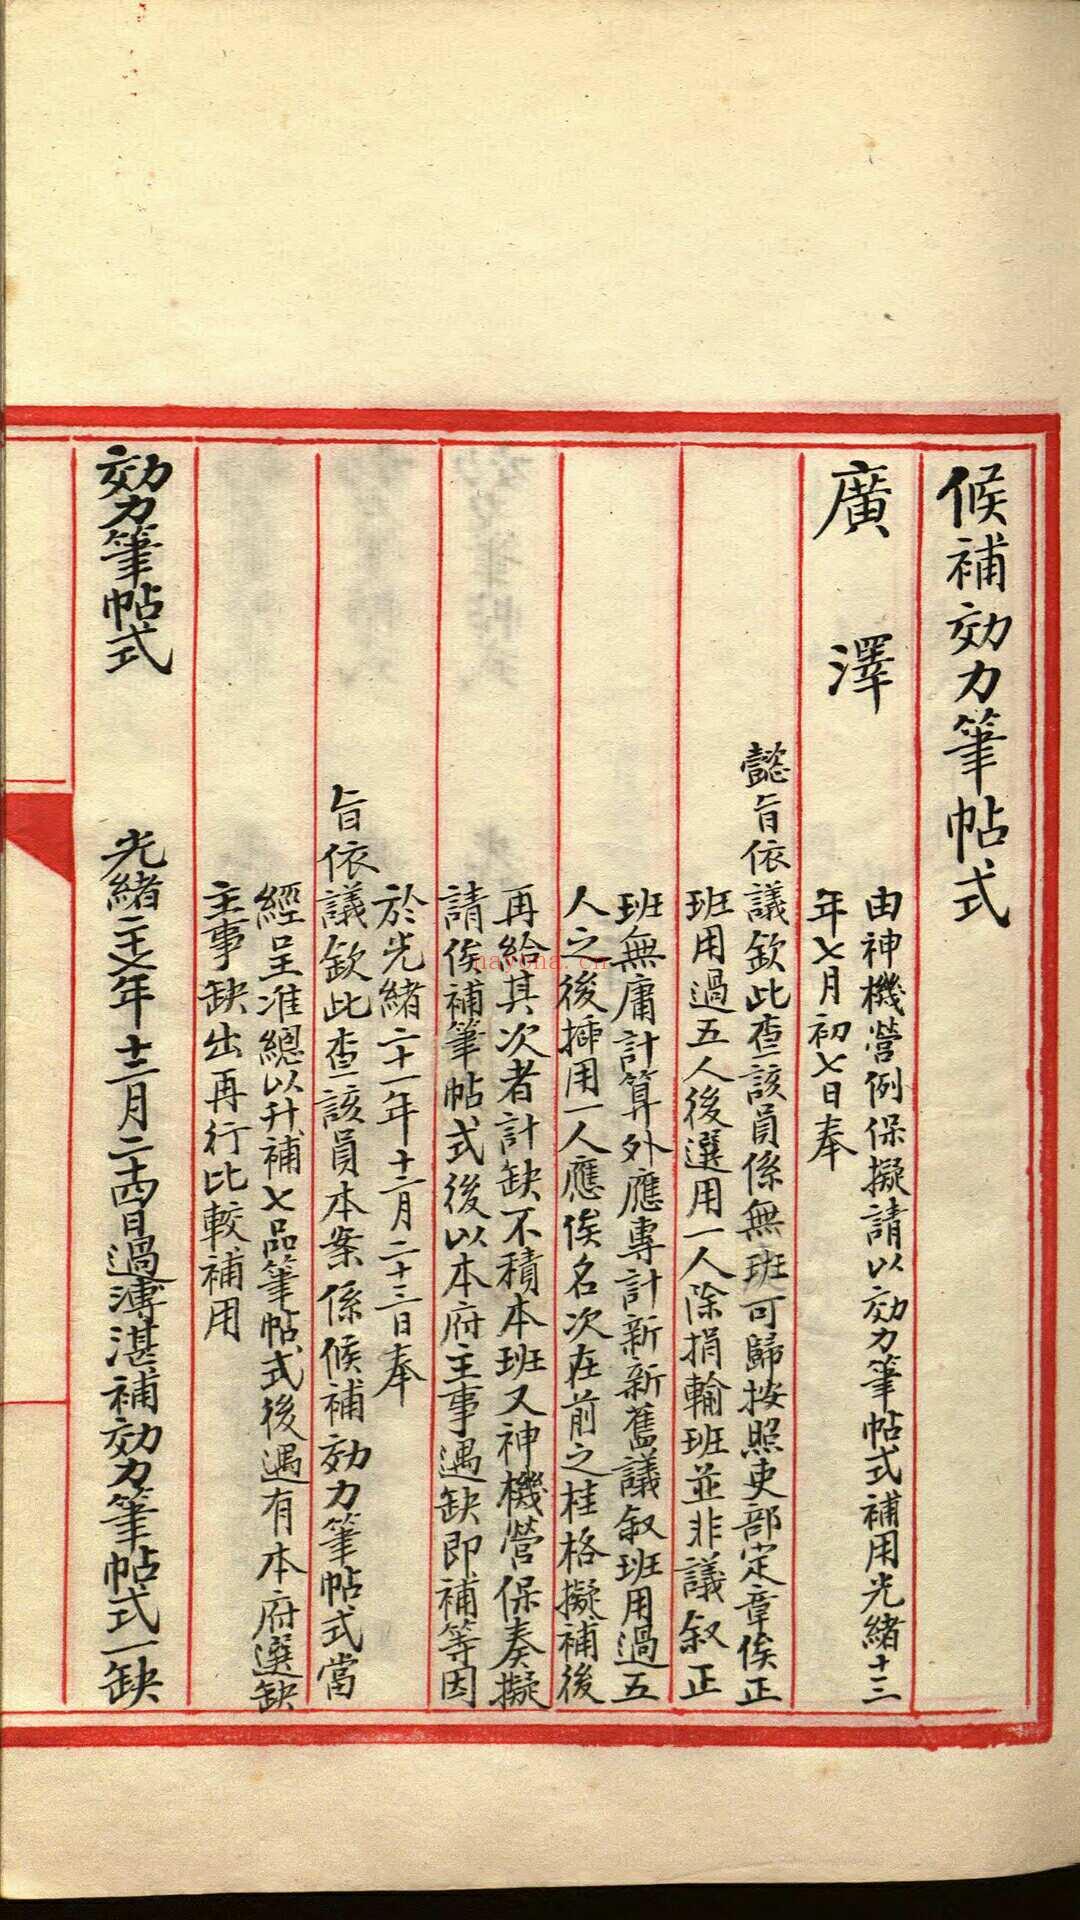 候補効力筆帖式
廣澤
由神機營例保擬請以効力筆帖式補用光緒十三
年七月初七日奉
懿旨依議欽此查該員係無班可歸按照吏部定章俟正
班用過五人後選用一人除捐輸班並非議叙正
班無庸計算外應專計新新舊議叙班用過五
人之後插用一人應俟名次在前之桂格擬補後
再給其次者計缺不積本班又神機營保奏擬
請俟補筆帖式後以本府主事遇缺即補等因
於光緒二十一年十二月二十三日奉
旨依議欽此查該員本案係候補効力筆帖式當
經呈准總以升補七品筆帖式後遇有本府選缺
主事缺出再行比較補用
効力筆帖式
光緒二十七年十二月二十四日過溥湛補効力筆帖式一缺
nayona.cn